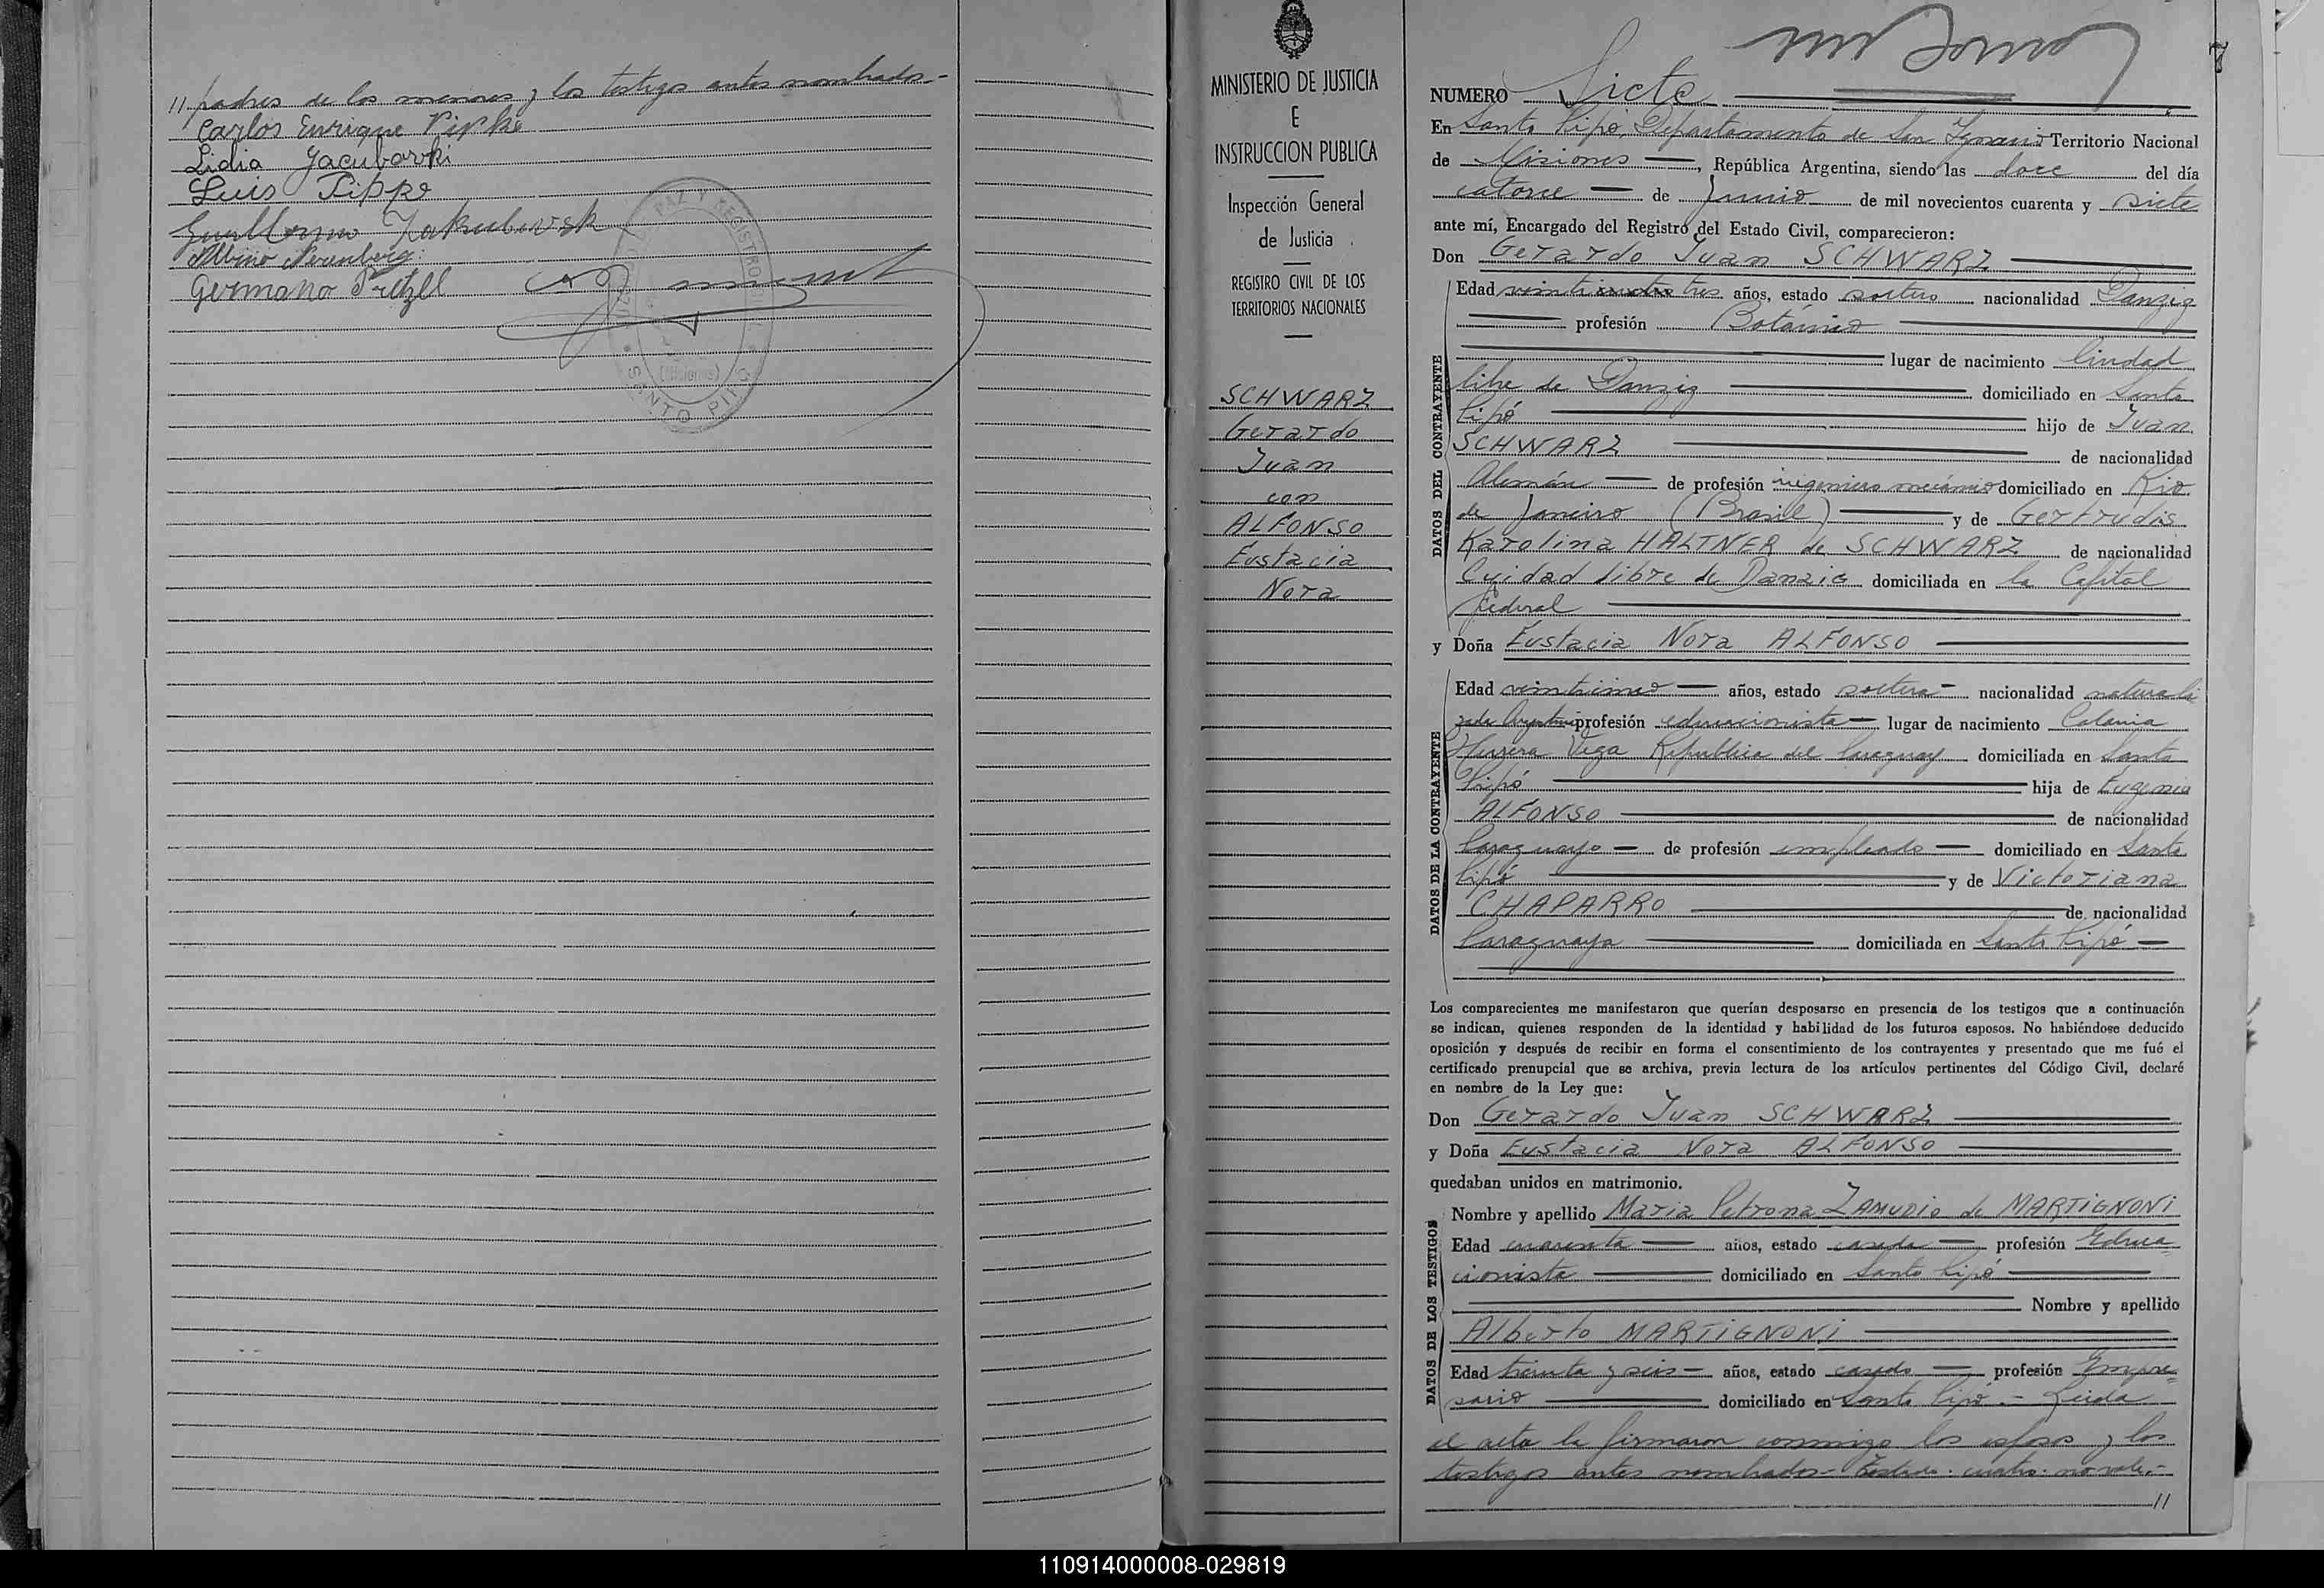 // padres de los menores y los testigos antes nombrados.-
Carlos Enrique Pipke
Lidia Jacubovski
Luis Pippo
Guillermo Jakubowsk
Albino Nerenberg
Germano Pretzel
PAZ Y REGISTRO CIVIL
(Misiones)
SANTO PIPÓ
MINISTERIO DE JUSTICIA
E
INSTRUCCION PUBLICA
Inspección General
de Justicia
REGISTRO CIVIL DE LOS
TERRITORIOS NACIONALES
SCHWARZ
Gerardo
Juan
con
ALFONSO
Eustacia
Nora
7
NUMERO Siete
En Santo Pipó, Departamento de San Ignacio Territorio Nacional
de Misiones, República Argentina, siendo las doce del día
catorce de Junio de mil novecientos cuarenta y siete
ante mí, Encargado del Registro del Estado Civil, comparecieron:
Don Gerardo Juan SCHWARZ
DATOS DEL CONTRAYENTE
Edad veinticuatro tres años, estado soltero nacionalidad Danzig
profesión Botánico
lugar de nacimiento Ciudad
libre de Danzig domiciliado en Santo
Pipó hijo de Juan
SCHWARZ de nacionalidad
Alemán de profesión ingeniero mecánico domiciliado en Rio
de Janeiro (Brasil) y de Gertrudis
Karolina HALTNER de SCHWARZ de nacionalidad
Cuidad Libre de Danzig domiciliada en la Capital
Federal
y Doña Eustacia Nora ALFONSO
DATOS DE LA CONTRAYENTE
Edad veinticinco años, estado soltera nacionalidad naturali
zada Argentina profesión educacionista lugar de nacimiento Colonia
Herrera Vega República del Paraguay domiciliada en Santo
Pipó hija de Eugenio
ALFONSO de nacionalidad
Paraguayo de profesión empleado domiciliado en Santo
Pipó y de Victoriana
CHAPARRO de nacionalidad
Paraguaya domiciliada en Santo Pipó
Los comparecientes me manifestaron que querían desposarse en presencia de los testigos que a continuación
se indican, quienes responden de la identidad y habilidad de los futuros esposos. No habiéndose deducido
oposición y después de recibir en forma el consentimiento de los contrayentes y presentado que me fué el
certificado prenupcial que se archiva, previa lectura de los artículos pertinentes del Código Civil, declaré
en nombre de la Ley que:
Don Gerardo Juan SCHWARZ
y Doña Eustacia Nora ALFONSO
quedaban unidos en matrimonio.
DATOS DE LOS TESTIGOS
Nombre y apellido Maria Petrona ZAMUDIO de MARTIGNONI
Edad cuarenta años, estado casada profesión Educa
cionista domiciliado en Santo Pipó
Nombre y apellido
Alberto MARTIGNONI
Edad treinta y seis años, estado casado profesión Empre-
sario domiciliado en Santo Pipó.- Leida
el acta la firmaron conmigo los esposos y los
testigos antes nombrados.- Testado: cuatro: no vale.-
//
110914000008-029819